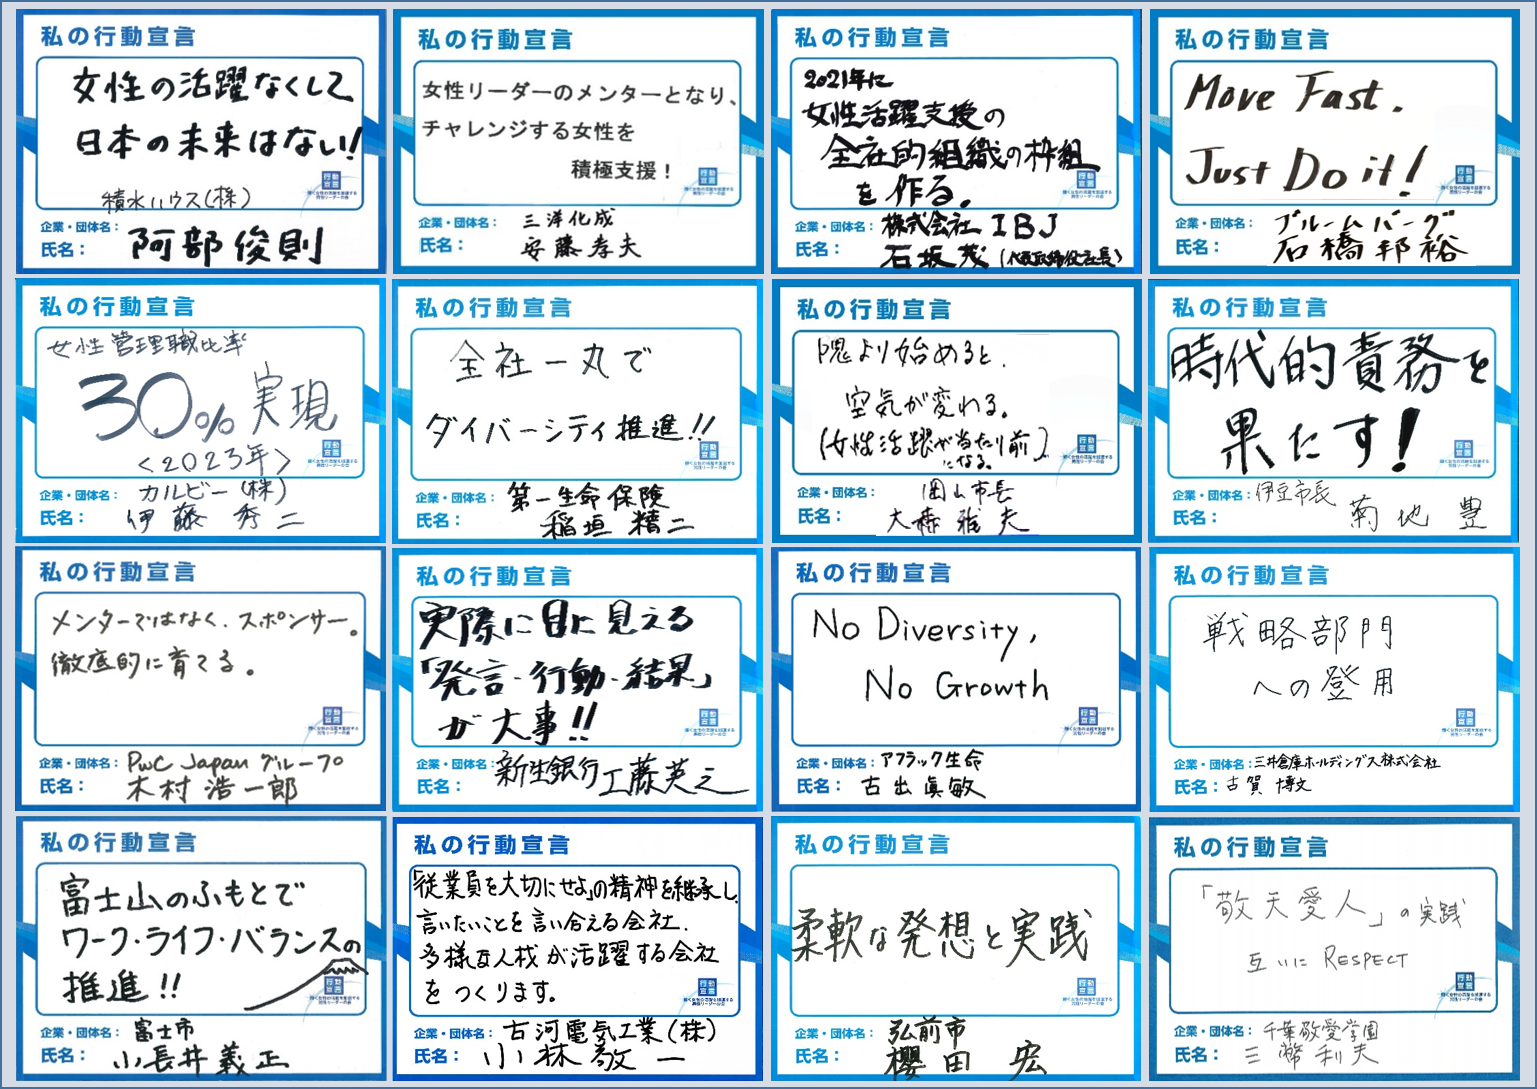 私の行動宣言
女性の活躍なくして
日本の未来はない!
積水ハウス(株)
企業・団体名：
氏名： 阿部俊則
私の行動宣言
女性リーダーのメンターとなり、
チャレンジする女性を
積極支援！
企業・団体名： 三洋化成
氏名： 安藤孝夫
私の行動宣言
2021年に
女性活躍支援の
全社的組織の枠組
を作る。
企業・団体名： 株式会社IBJ
氏名： 石坂茂(代表取締役社長)
私の行動宣言
Move Fast.
Just Do it!
企業・団体名： ブルームバーグ
氏名： 石橋邦裕
私の行動宣言
女性管理職比率
30%実現
<2023年>
企業・団体名： カルビー(株)
氏名： 伊藤秀二
私の行動宣言
全社一丸で
ダイバーシティ推進!!
企業・団体名： 第一生命保険
氏名： 稲垣精二
私の行動宣言
隗より始めると、
空気が変わる。
(女性活躍が当たり前)
になる。
企業・団体名： 岡山市長
氏名： 大森雅夫
私の行動宣言
時代的責務を
果たす!
企業・団体名： 伊豆市長
氏名： 菊地豊
私の行動宣言
メンターではなく、スポンサー。
徹底的に育てる。
企業・団体名： PwC Japanグループ
氏名： 木村浩一郎
私の行動宣言
実際に目に見える
「発言・行動・結果」
が大事!!
企業・団体名： 新生銀行
氏名： 工藤英之
私の行動宣言
No Diversity,
No Growth
企業・団体名： アフラック生命
氏名： 古出眞敏
私の行動宣言
戦略部門
への登用
企業・団体名： 三井倉庫ホールディングス株式会社
氏名： 古賀博文
私の行動宣言
富士山のふもとで
ワーク・ライフ・バランスの
推進!!
企業・団体名： 富士市
氏名： 小長井義正
私の行動宣言
「従業員を大切にせよ」の精神を継承し、
言いたいことを言い合える会社、
多様な人材が活躍する会社
をつくります。
企業・団体名： 古河電気工業(株)
氏名： 小林敬一
私の行動宣言
柔軟な発想と実践
企業・団体名： 弘前市
氏名： 櫻田宏
私の行動宣言
「敬天愛人」の実践
互いにRESPECT
企業・団体名： 千葉敬愛学園
氏名： 三幣利夫